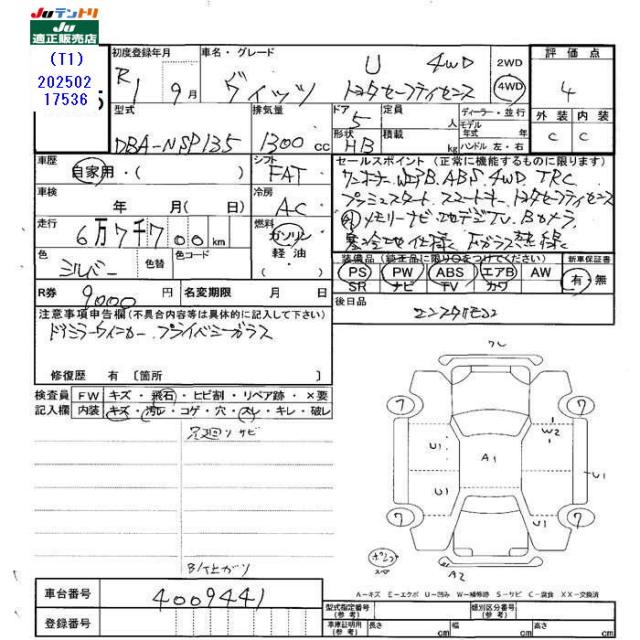 Juテントリ
Ju
適正販売店
(T1)
202502
17536
5
初度登録年月
R1 9月
車名・グレード
ヴィッツ U 4WD トヨタセーフティセンス
2WD
4WD
評価点
4
外装 内装
C C
型式
DBA-NSP135
排気量
1300cc
ドア
5
形状
HB
定員
人
積載
kg
ディーラー・並行
モデル
年式 年
ハンドル 左・右
車歴
自家用・( )
シフト
FAT
車検
年 月( 日)
冷房
AC
走行
6万7千700km
燃料
ガソリン
軽油
色
シルバー
色替
色コード
R券 9000円
名変期限 月 日
セールスポイント(正常に機能するものに限ります)
ワンオーナー WエアB ABS 4WD TRC
プッシュスタート スマートキー トヨタセーフティセンス
メモリーナビ 地デジTV Bカメラ
寒冷地仕様 Fガラス熱線
装備品(純正品に限り○をつけてください)
新車保証書
PS PW ABS エアB AW
SR ナビ TV カワ
有・無
後日品
注意事項申告欄(不具合内容等は具体的に記入して下さい)
ドアミラーウィンカー プライバシーガラス
修復歴 有 〔箇所 〕
検査員
記入欄
FW キズ・飛石・ヒビ割・リペア跡・×要
内装 キズ・汚レ・コゲ・穴・スレ・キレ・破レ
足廻りサビ
B/仕上がり
7
7
7
7
U1
W2
A1
U1
U1
U1
A2
車台番号 4009441
登録番号
A−キズ E−エクボ U−凹み W−補修跡 S−サビ C−腐食 XX−交換済
型式指定番号
(参考)
類別区分番号
(参考)
車庫証明用
(参考)
長さ cm
幅 cm
高さ cm